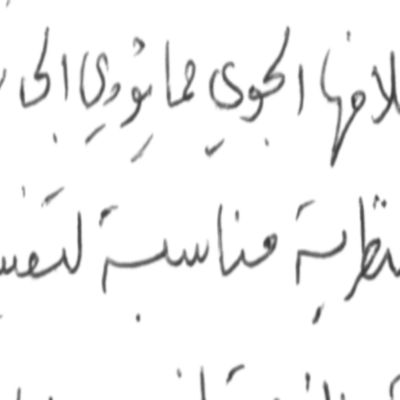 لافها الجوي مما يؤدي الى
نظرية مناسبة لتفس